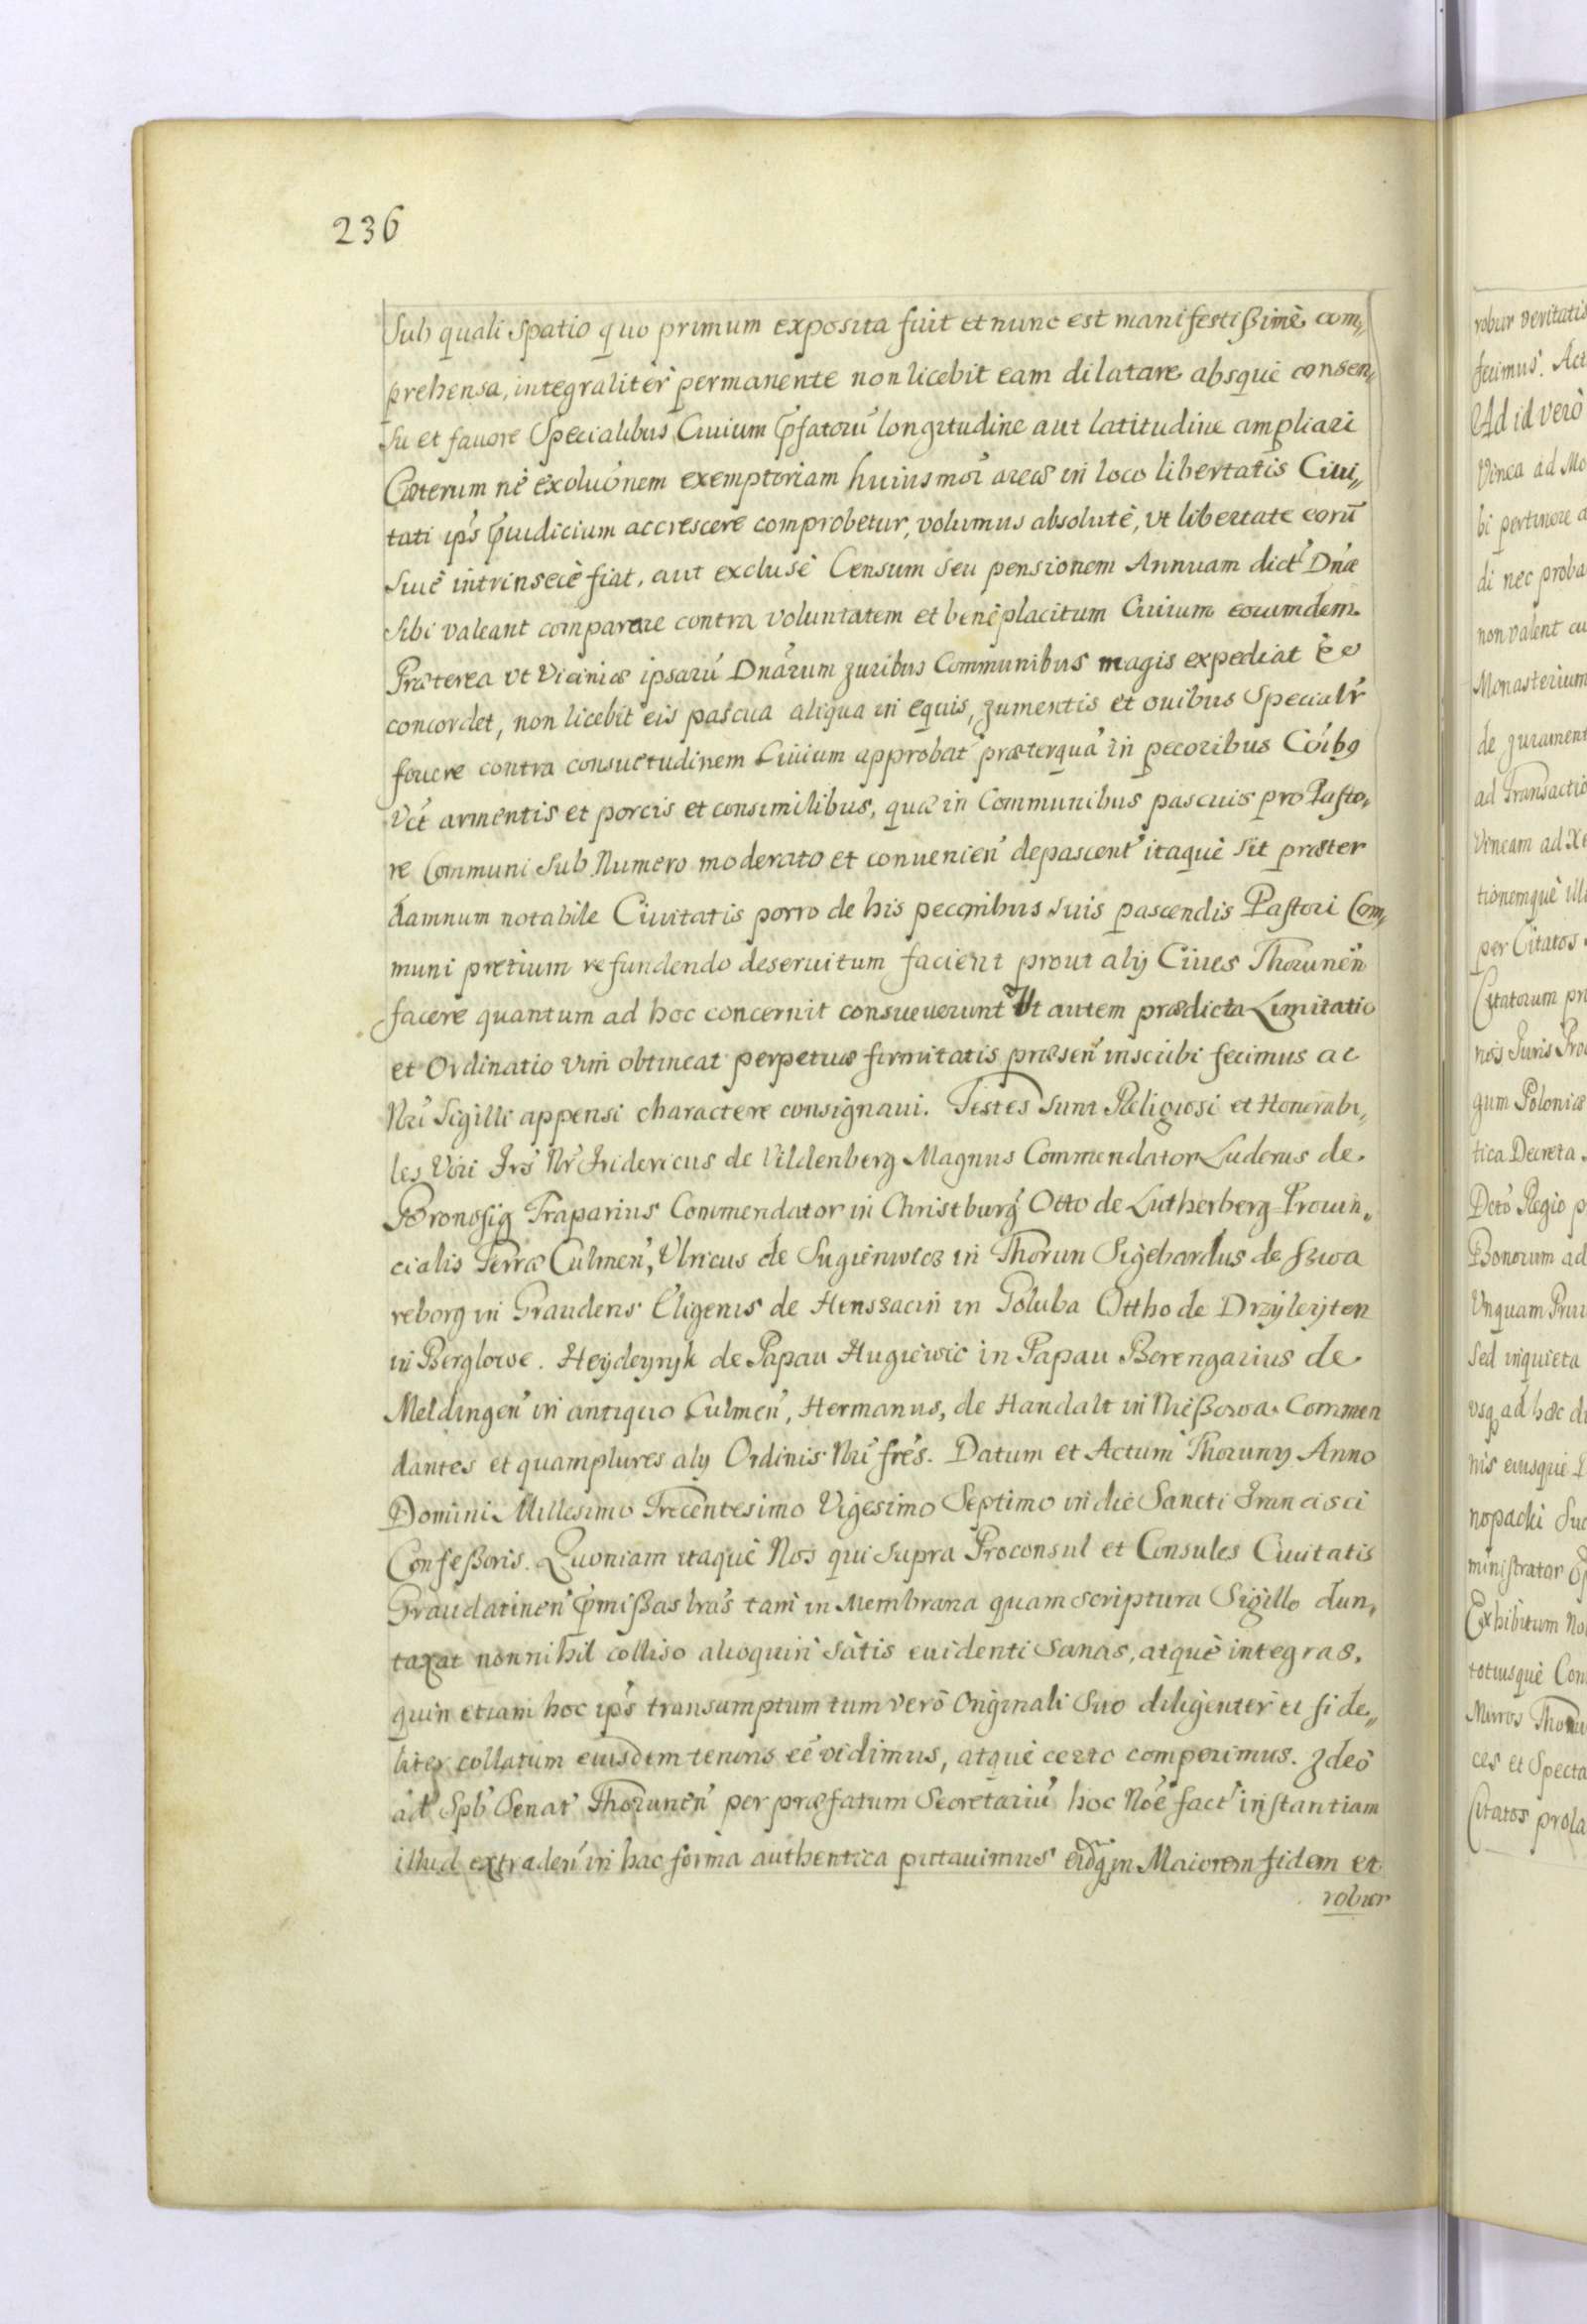 236
Sub quali Spatio quo primum exposita fuit et nunc est manifestißimè com„
prehensa, integralitèr permanente non licebit eam dilatare absquè consen„
su et fauore Specialibus Ciuium p̃fatorũ longitudine aut latitudine ampliari
Cæterum nè exoluónem exemptoriam huiusmoi areæ in loco libertatis Ciui„
tati ips p̃iudicium accrescere comprobetur, volumus absolutè, vt libertate eorũ
siuè intrinsecè fiat, aut exclusè Censum seu pensionem Annuam dict Dnæ
sibi valeant comparare contra voluntatem et benè placitum Ciuium eorumdem.
Præterea vt Viciniæ ipsarũ Dnarum juribus Communibus magis expediat et
concordet, non licebit eis pascua aliqua in equis, jumentis et ouibus Specialr
fouere contra consuetudinem Ciuium approbat præterquã in pecoribus Coibq
Vct armentis et porcis et consimilibus, quæ in Communibus pascuis pro Pasto„
re Communi sub Numero moderato et conuenien depascent itaquè sit præter
damnum notabile Ciuitatis porro de his pecoribus suis pascendis Pastori Com„
muni pretium refundendo deseruitum facient prout alij Ciues Thorunen
facere quantum ad hoc concernit consueuerunt Vt autem prædicta Limitatio
et Ordinatio vim obtineat perpetuæ firmitatis præsen inscribi fecimus ac
Nri Sigilli appensi charactere consignaui. Testes sunt Religiosi et Honorabi„
les Viri Frs Nr Fridericus de Vildenberg Magnus Commendator Luderus de
Bronosig Traparius Commendator in Christburg Otto de Lutherberg Prouin„
cialis Terræ Culmen, Vlricus de Sugienwicz in Thorun Sigehardus de szwa
reborg in Graudens Eligenis de Henszacin in Goluba Ottho de Drzyleyten
in Berglowe. Heydeynyk de Papau Hugiewic in Papau Berengarius de
Meldingen in antiquo Culmen, Hermanus, de Handalt in Nießowa Commen
dantes et quamplures alij Ordinis Nri fres. Datum et Actum Thoruny Anno
Domini Millesimo Trecentesimo Vigesimo Septimo in die Sancti Francisci
Confeßoris. Quoniam itaquè Nos qui supra Proconsul et Consules Ciuitatis
Graudatinen p̃mißas lras tam in Membrana quam scriptura Sigillo dun„
taxat nonnihil colliso alioquin satis euidenti sanas, atquè integras,
quin etiam hoc ips transumptum tum verò Originali suo diligentèr et fide„
liter collatum euisdem tenoris eè vidimus, atquè certo comperimus. Jdeò
ad Spb Senat Thorunen per præfatum Secretariũ hoc Noe fact instantiam
illud extraden in hac forma authentica putauimus eidq in Maiorem fidem et
robur
robur veritatis
fecimus. Act
Ad id verò
Vinea ad Mo
bi pertinere a
di nec proba
non valent cu
Monasterium
de jurament
ad Transactio
Vineam ad Xe
tionemquè ill
per Citatos
Citatorum pr
nois Juris Pro
gum Poloniæ
tica Decreta.
Dcto Regio p
Bonorum ad
Vnquam Priu
Sed inquieta
vsq ad hæc di
nis eiusquè
nopacki Suc
ministrator
Exhibitum No
totiusquè Con
Muros Thoru
ces et Specta
Citatos prola